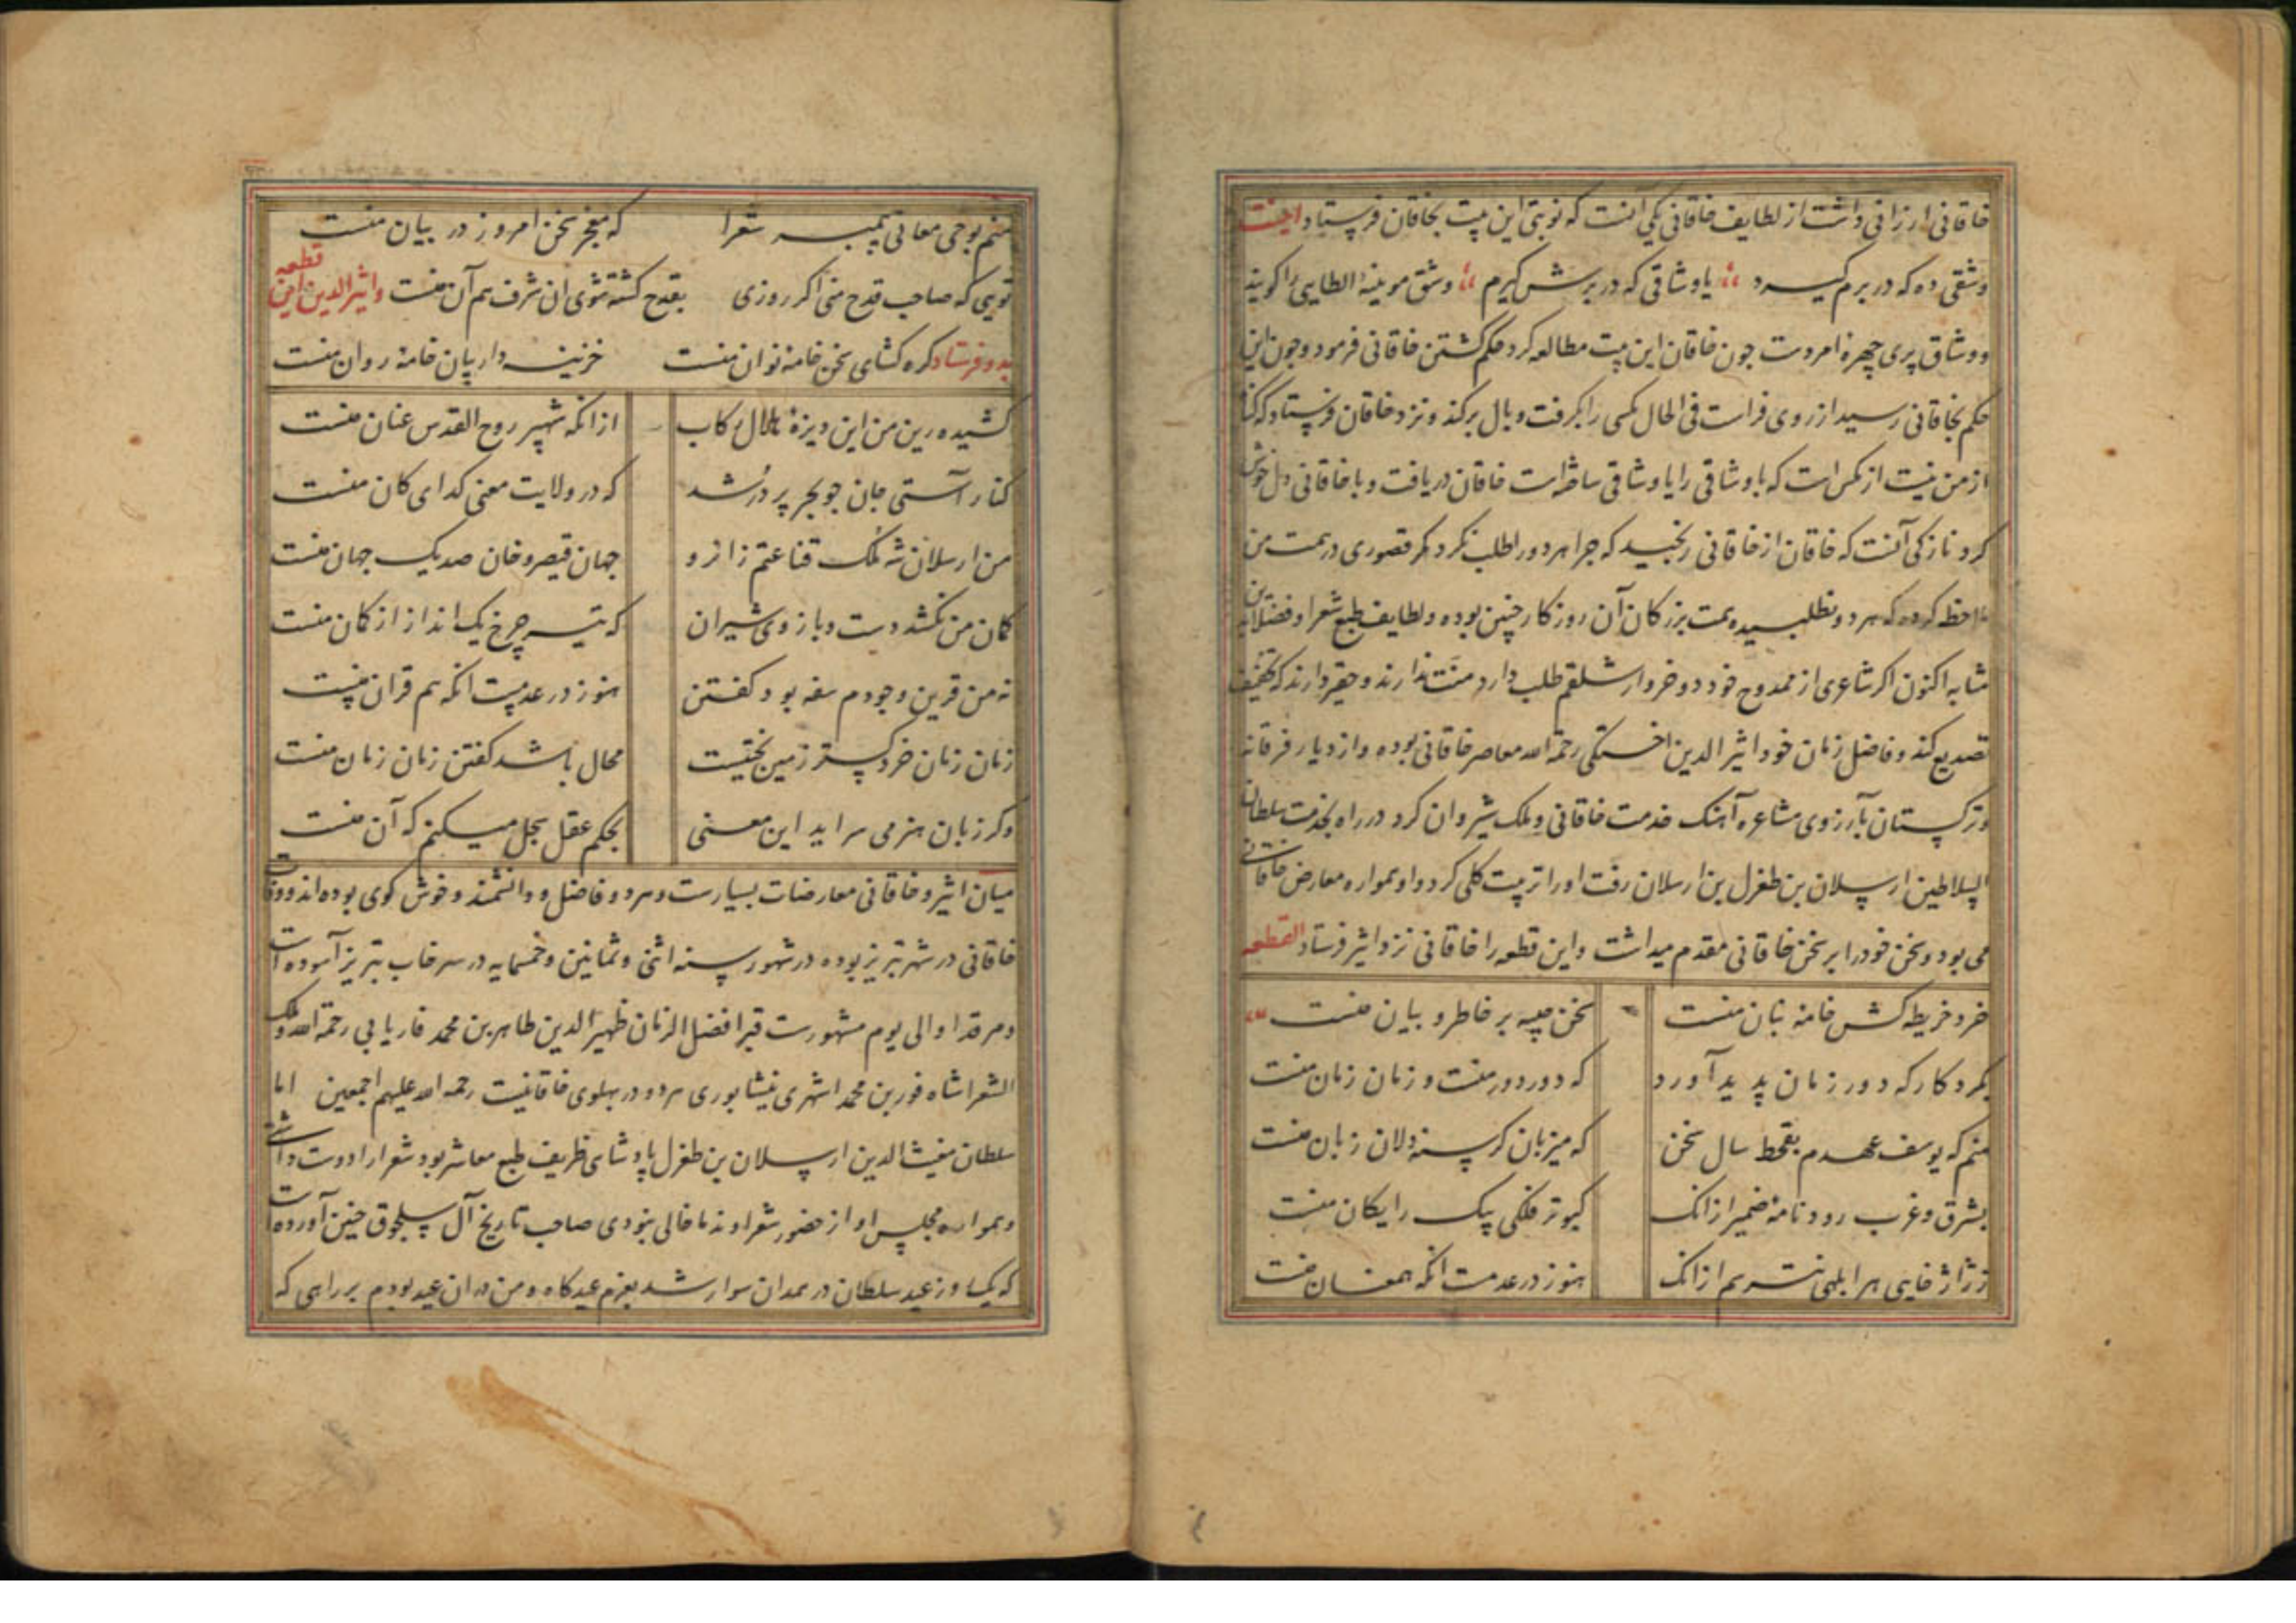 خاقانی ارزانی داشت از لطایف خاقانی یکی آنست که نوبتی این بیت بخاقان فرستاد بیت
وشقی ده که در برم گیرد یا وشاقی که در برش گیرم وشق موینهٔ الطایی را گویند
و وشاق پری چهرهٔ امردست چون خاقان این بیت مطالعه کرد حکم کشتن خاقانی فرمود و چون این
حکم بخاقانی رسید از روی فراست فی الحال مگسی را بگرفت و بال برکند و نزد خاقان فرستاد که گناه
از من نیست از مگس است که با وشاقی را یا وشاقی ساخته است خاقان دریافت و با خاقانی دل خوش
کرد نازکی آنست که خاقان از خاقانی رنجید که چرا هر دو را طلب نکرد مگر قصوری در همت من
ملاحظه کرده که هر دو نطلبیده همت بزرگان آن روزگار چنین بوده و لطایف طبع شعرا و فضلا بدین
مثابه اکنون اگر شاعری از ممدوح خود دو خروار شلغم طلب دارد منت ندارند و حقیر دارند که تخفیف
تصدیع کند و فاضل زمان خود اثیر الدین اخسیکتی رحمة الله معاصر خاقانی بوده و از دیار فرغانه
و ترکستان بآرزوی مشاعره آهنک خدمت خاقانی و ملک شیروان کرد در راه بخدمت سلطان
السلاطین ارسلان بن طغرل بن ارسلان رفت او را تربیت کلی کرد و او همواره معارض خاقانی
می بود و سخن خود را بر سخن خاقانی مقدم میداشت و این قطعه را خاقانی نزد اثیر فرستاد القطعه
خرد خریطه کش خامهٔ بنان منست سخن جنیبه بر خاطر و بیان منست
بکردکار که دور زمان پدید آورد که دور دور منست و زمان زمان منست
منم که یوسف عهدم بقحط سال سخن که میزبان گرسنه دلان زبان منست
بشرق و غرب رود نامهٔ ضمیرم از انک کبوتر فلکی پیک رایکان منست
ز ژاژ خایی هر ابلهی نترسم از انک هنوز در عدمست انکه همعنان منست
منم بوحی معانی پیمبر شعرا که معجز سخن امروز در بیان منست
تویی که صاحب قدح منی اگر روزی بقدح کشته شوی ان شرف هم آن منست و اثیر الدین این قطعه
بدو فرستاد گره گشای سخن خامهٔ توان منست خزینه دار بیان خامهٔ روان منست
کشیده زین من این دیزهٔ هلال رکاب از انکه شهپر روح القدس عنان منست
کنار آستی جان چو بحر پر در شد که در ولایت معنی کدای کان منست
من ارسلان شه ملک قناعتم زانرو جهان قیصر و خان صدیک جهان منست
کمان من نکشد دست و بازوی شیران که تیر چرخ یک انداز از کمان منست
نه من قرین وجودم سفه بود گفتن هنوز در عدمست انکه هم قران منست
زمان زمان خرد گستر زمین بختیست محال باشد گفتن زمان زمان منست
وگر زبان هنر می سراید این معنی بحکم عقل سجل میکنم که آن منست
میان اثیر و خاقانی معارضات بسیارست و هر دو فاضل و دانشمند و خوش گوی بوده اند و وفات
خاقانی در شهر تبریز بوده در شهور سنه اثنی و ثمانین و خمسمایه در سرخاب تبریز آسوده است
و مرقد او الی یوم مشهورست قبر افضل الزمان ظهیر الدین طاهر بن محمد فاریابی رحمة الله و ملک
الشعرا شاه فور بن محمد اشهری نیشابوری هر دو در پهلوی خاقانیست رحمه الله علیهم اجمعین اما
سلطان مغیث الدین ارسلان بن طغرل پادشاهی ظریف طبع معاشر بود شعرا را دوست داشتی
و همواره مجلس او از حضور شعرا و ندما خالی نبودی صاحب تاریخ آل سلجوق چنین آورده
که یکسا روز عید سلطان در همدان سوار شد بعزم عیدگاه و من در ان عید بودم بر راهی که